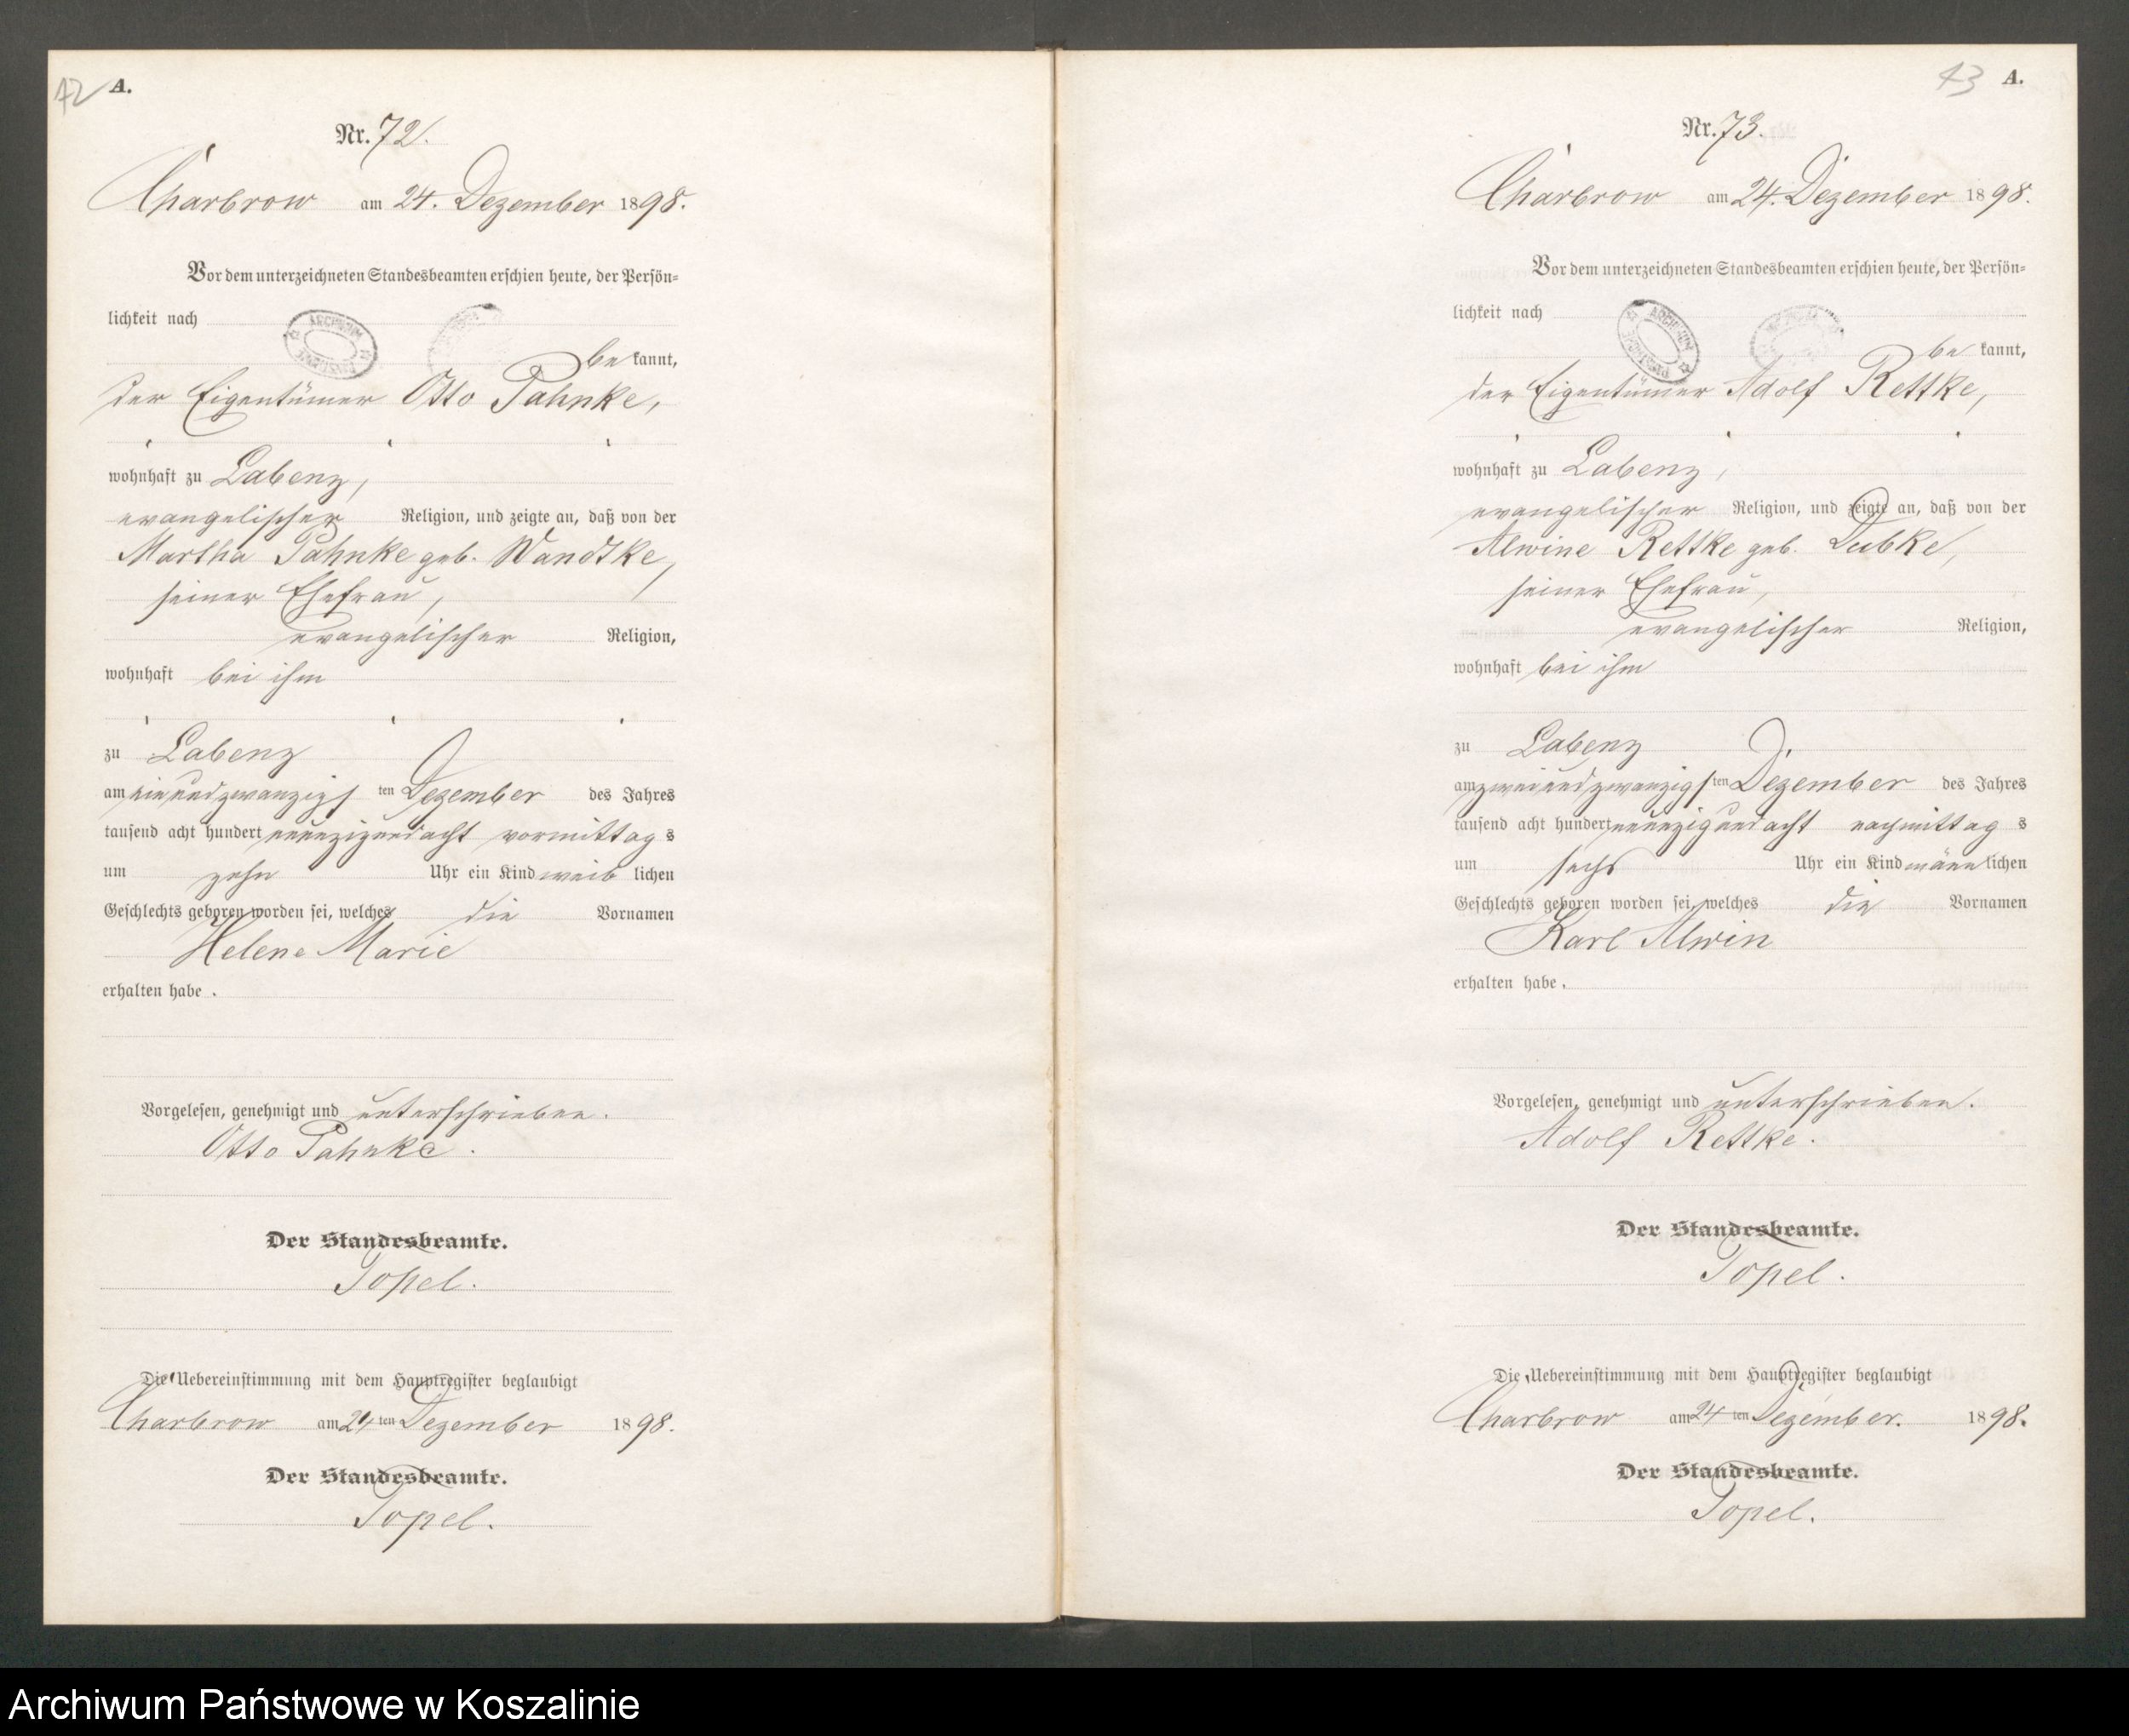 72 A.
Nr. 72.
Charbrow am 24. Dezember 1898.
Vor dem unterzeichneten Standesbeamten erschien heute, der Persön=
lichkeit nach
be kannt,
der Eigentümer Otto Pahnke,
wohnhaft zu Labenz,
evangelischer Religion, und zeigte an, daß von der
Martha Pahnke geb. Wandtke,
seiner Ehefrau,
evangelischer Religion,
wohnhaft bei ihm
zu Labenz
am einundzwanzigsten Dezember des Jahres
tausend acht hundert neunzigundacht vormittags
um zehn Uhr ein Kind weiblichen
Geschlechts geboren worden sei, welches die Vornamen
Helene Marie
erhalten habe.
Vorgelesen, genehmigt und unterschrieben.
Otto Pahnke.
Der Standesbeamte.
Topel.
Die Uebereinstimmung mit dem Hauptregister beglaubigt
Charbrow am 24ten Dezember 1898.
Der Standesbeamte.
Topel.
73 A.
Nr. 73.
Charbrow am 24. Dezember 1898.
Vor dem unterzeichneten Standesbeamten erschien heute, der Persön=
lichkeit nach
be kannt,
der Eigentümer Adolf Rettke,
wohnhaft zu Labenz,
evangelischer Religion, und zeigte an, daß von der
Alwine Rettke geb. Lubke,
seiner Ehefrau,
evangelischer Religion,
wohnhaft bei ihm
zu Labenz
am zweiundzwanzigsten Dezember des Jahres
tausend acht hundert neunzigundacht nachmittags
um sechs Uhr ein Kind männlichen
Geschlechts geboren worden sei, welches die Vornamen
Karl Alwin
erhalten habe.
Vorgelesen, genehmigt und unterschrieben.
Adolf Rettke.
Der Standesbeamte.
Topel.
Die Uebereinstimmung mit dem Hauptregister beglaubigt
Charbrow am 24ten Dezember. 1898.
Der Standesbeamte.
Topel.
Archiwum Państwowe w Koszalinie